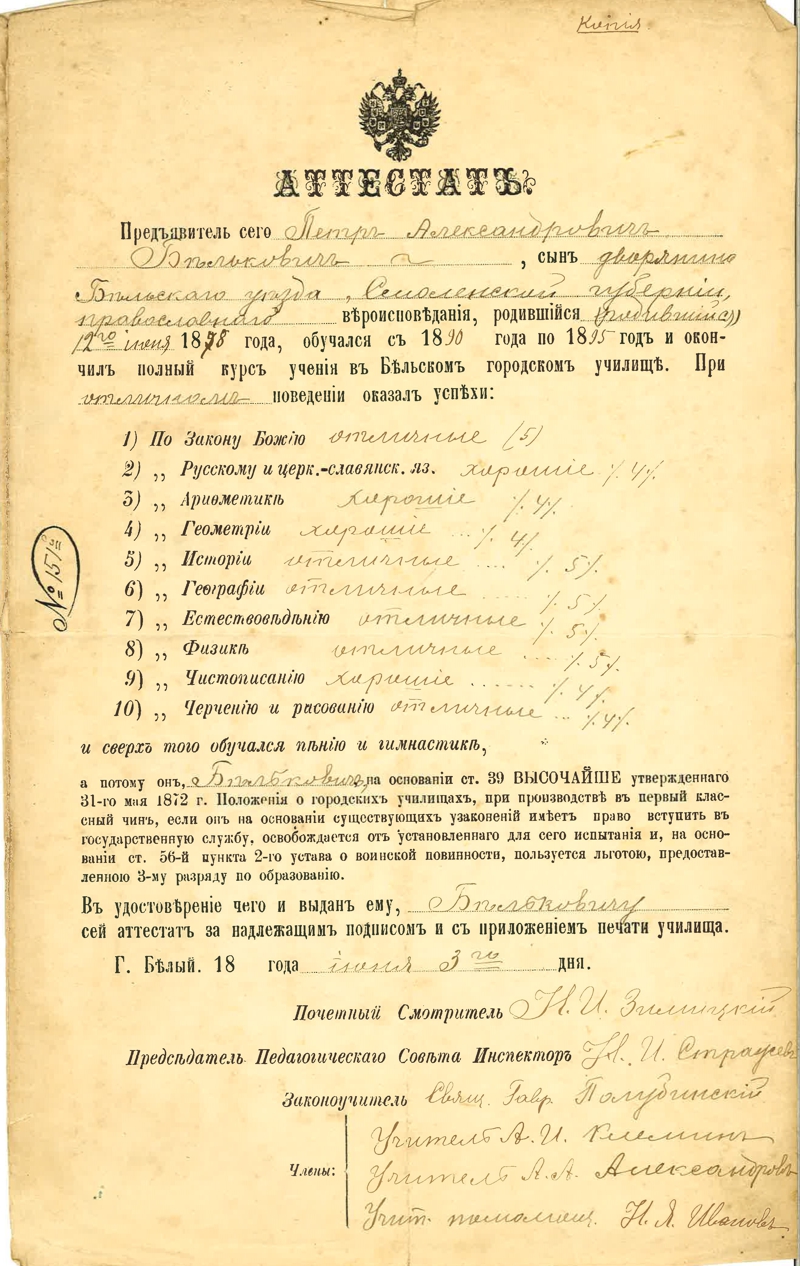 Копія
АТТЕСТАТЪ.
Предъявитель сего Петръ Александровичъ
Бѣльковичъ, сынъ дворянина
Бѣльскаго уѣзда, Смоленской губерніи,
православнаго вѣроисповѣданія, родившійся (родившійся)
12го іюня 1878 года, обучался съ 1890 года по 1895 годъ и окон-
чилъ полный курсъ ученія въ Бѣльскомъ городскомъ училищѣ. При
отличномъ поведеніи оказалъ успѣхи:
1) По Закону Божію отличные (5)
2) „ Русскому и церк.-славянск. яз. хорошіе /4/.
3) „ Ариѳметикѣ хорошіе /4/.
4) „ Геометріи хорошіе ... /4/
5) „ Исторіи отличные .... /5/.
6) „ Географіи отличные ..... /5/.
7) „ Естествовѣдѣнію отличные /5/.
8) „ Физикѣ отличные ... /5/.
9) „ Чистописанію хорошіе ...... /4/.
10) „ Черченію и рисованію отличные ... /4/.
№ 151й
и сверхъ того обучался пѣнію и гимнастикѣ,
а потому онъ, Бѣльковичъ, на основаніи ст. 39 ВЫСОЧАЙШЕ утвержденнаго
31-го мая 1872 г. Положенія о городскихъ училищахъ, при производствѣ въ первый клас-
сный чинъ, если онъ на основаніи существующихъ узаконеній имѣетъ право вступить въ
государственную службу, освобождается отъ установленнаго для сего испытанія и, на осно-
ваніи ст. 56-й пункта 2-го устава о воинской повинности, пользуется льготою, предостав-
ленною 3-му разряду по образованію.
Въ удостовѣреніе чего и выданъ ему, Бѣльковичу
сей аттестатъ за надлежащимъ подписомъ и съ приложеніемъ печати училища.
Г. Бѣлый. 18 года іюня 3го дня.
Почетный Смотритель Н. И. Зимицкій
Предсѣдатель Педагогическаго Совѣта Инспекторъ Н. И. Страусевъ
Законоучитель Свящ. Гавр. Полубинскій
Члены:
Учитель А. И. Клеминъ
Учитель А. А. Александровъ
Учит. помощн. Н. Я. Ивановъ